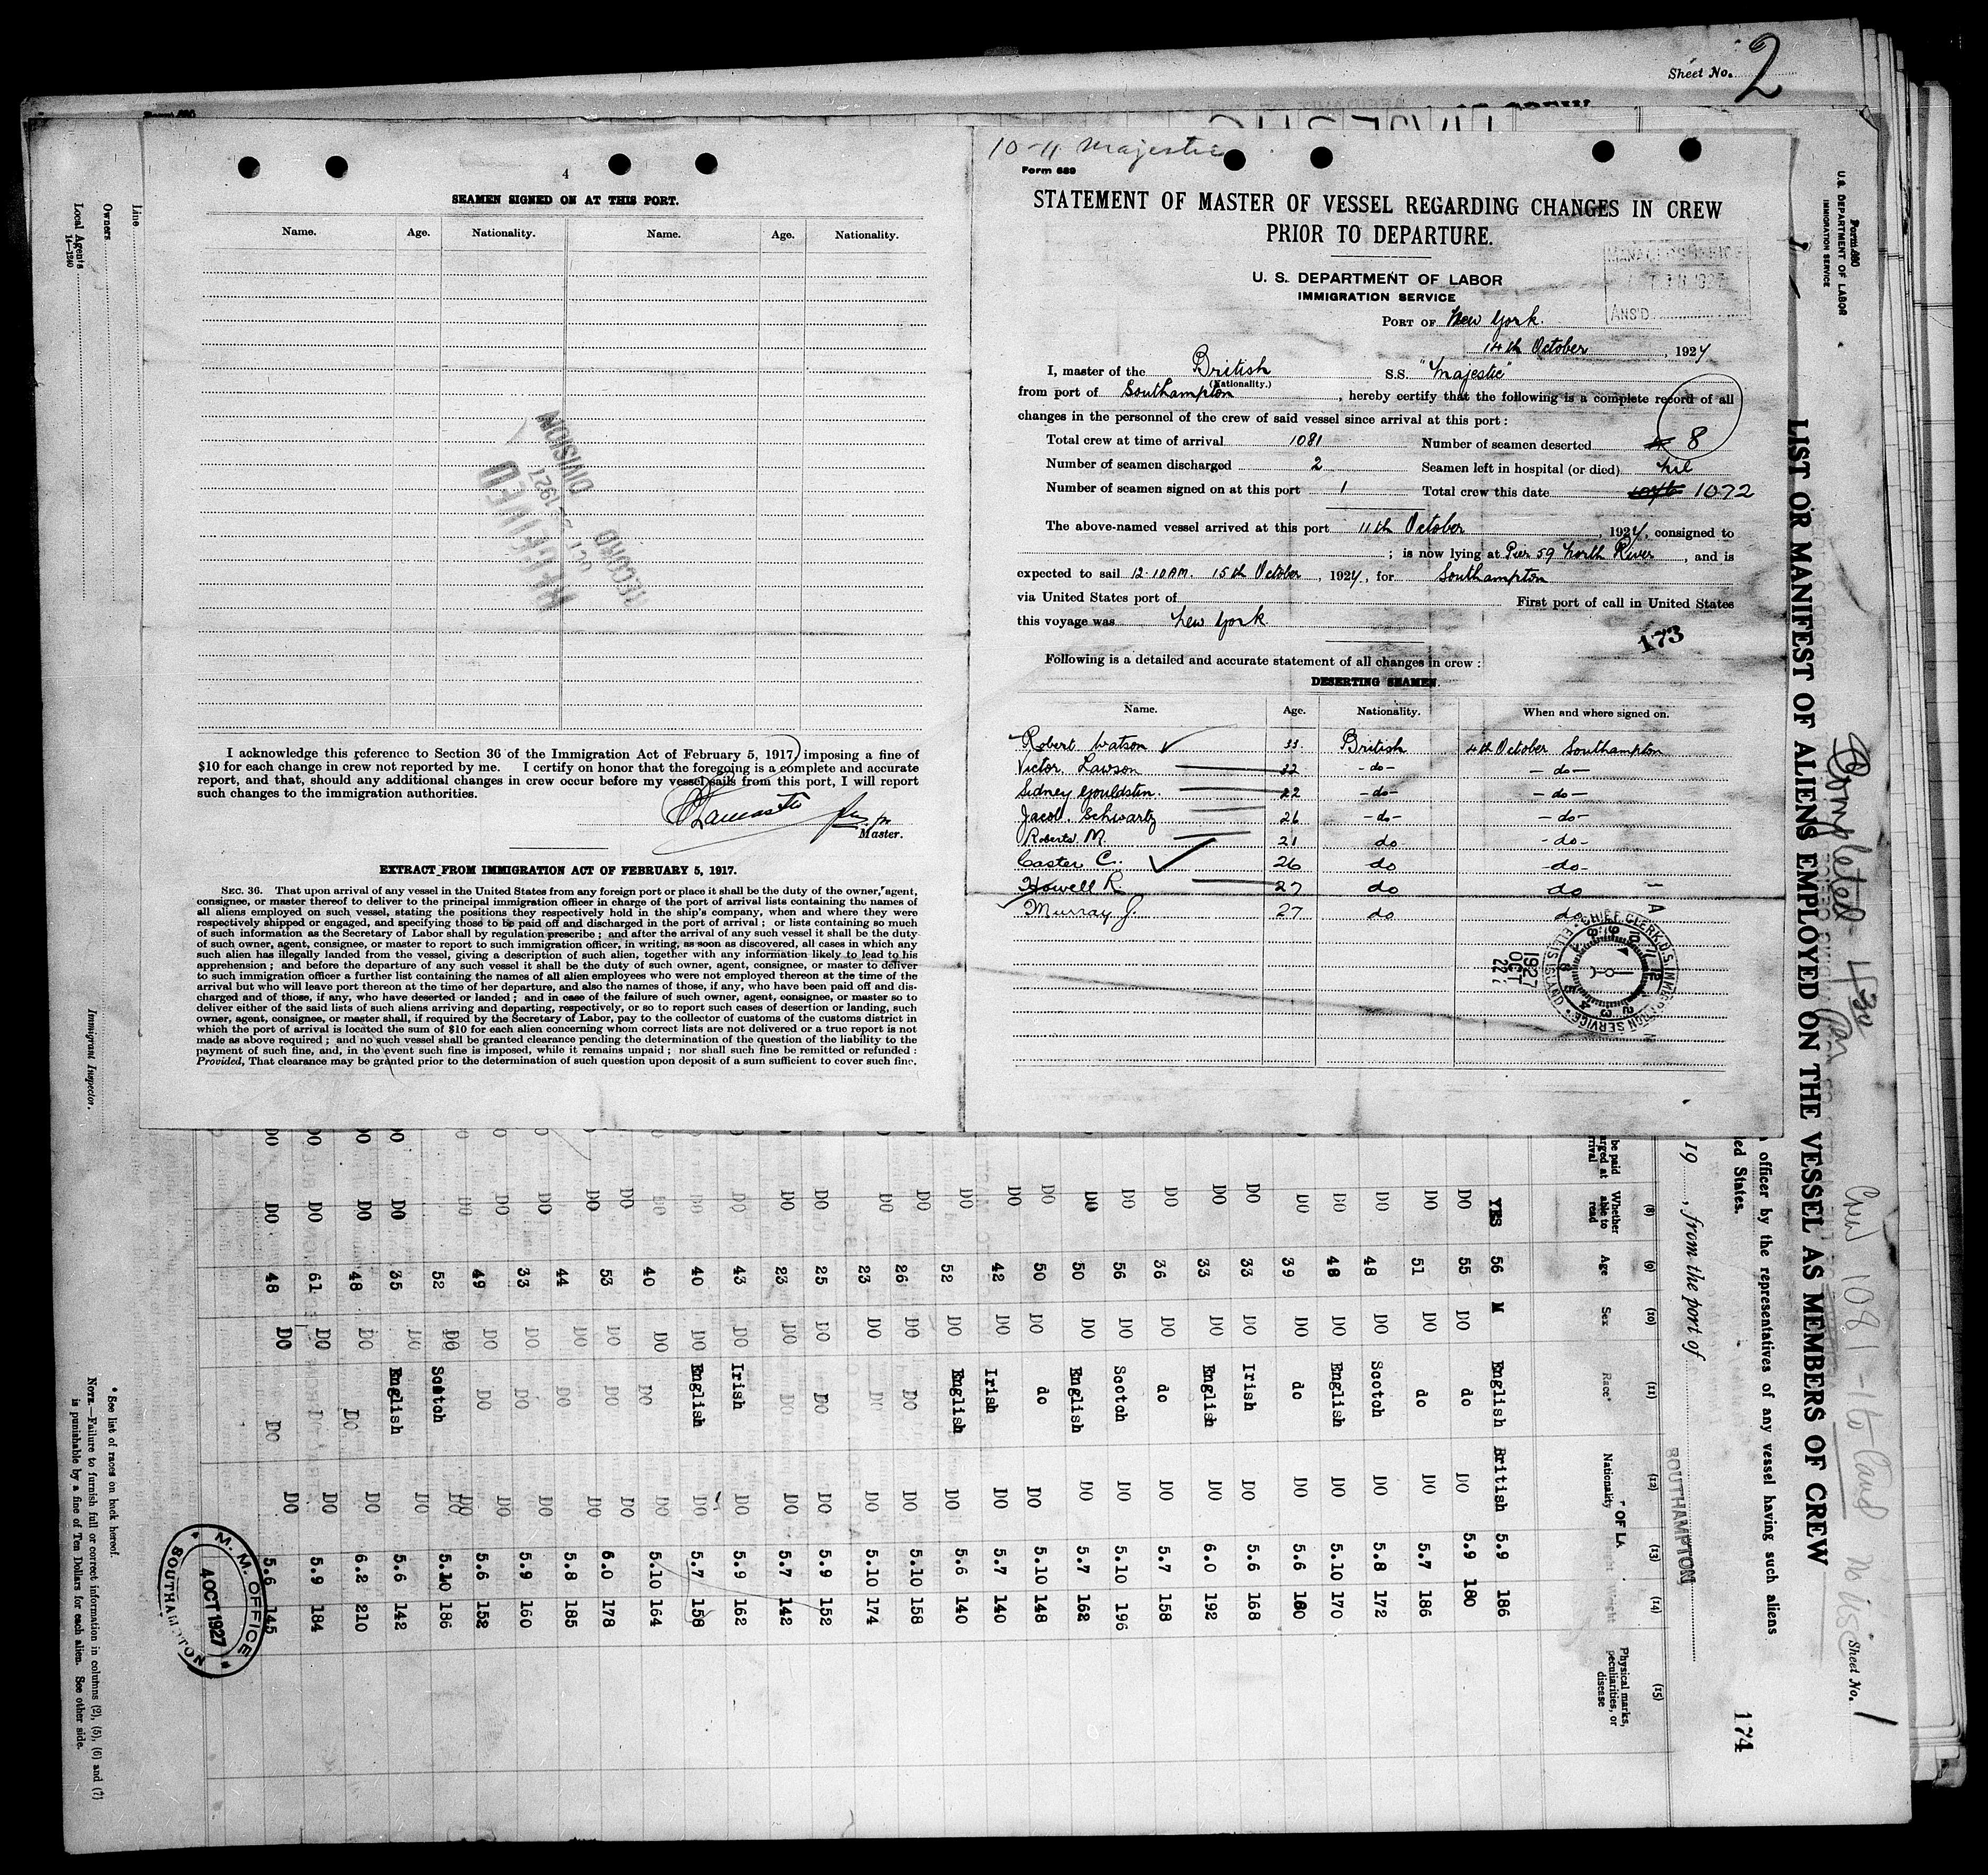 Sheet No. 2
10-11 Majestic
Form 689
STATEMENT OF MASTER OF VESSEL REGARDING CHANGES IN CREW
PRIOR TO DEPARTURE.
U. S. DEPARTMENT OF LABOR
IMMIGRATION SERVICE
ANS'D
PORT OF New York.
14th October, 1927
I, master of the British S.S. "Majestic"
(Nationality.)
from port of Southampton, hereby certify that the following is a complete record of all
changes in the personnel of the crew of said vessel since arrival at this port:
Total crew at time of arrival 1081 Number of seamen deserted 8
Number of seamen discharged 2 Seamen left in hospital (or died) Nil
Number of seamen signed on at this port 1 Total crew this date 1072
The above-named vessel arrived at this port 11th October, 1927, consigned to
; is now lying at Pier 59 North River, and is
expected to sail 12.10 AM. 15th October, 1927, for Southampton
via United States port of First port of call in United States
this voyage was New York.
173
Following is a detailed and accurate statement of all changes in crew:
DESERTING SEAMEN.
Name. Age. Nationality. When and where signed on.
Robert Watson 33 British 4th October Southampton
Victor Lawson 22 -do- -do-
Sidney Gouldstin. 22 -do- -do-
Jacob. Schwartz 26 -do- -do-
Roberts. M. 21 do -do-
Caster C. 26 do -do-
Howell R 27 do do
Murray J. 27 do do
CHIEF CLERK U.S. IMMIGRATION SERVICE
ELLIS ISLAND
1927 OCT 22
4
SEAMEN SIGNED ON AT THIS PORT.
Name. Age. Nationality. Name. Age. Nationality.
RECEIVED
OCT 1927
RECORD DIVISION
I acknowledge this reference to Section 36 of the Immigration Act of February 5, 1917, imposing a fine of
$10 for each change in crew not reported by me. I certify on honor that the foregoing is a complete and accurate
report, and that, should any additional changes in crew occur before my vessel sails from this port, I will report
such changes to the immigration authorities.
Master.
EXTRACT FROM IMMIGRATION ACT OF FEBRUARY 5, 1917.
SEC. 36. That upon arrival of any vessel in the United States from any foreign port or place it shall be the duty of the owner, agent,
consignee, or master thereof to deliver to the principal immigration officer in charge of the port of arrival lists containing the names of
all aliens employed on such vessel, stating the positions they respectively hold in the ship's company, when and where they were
respectively shipped or engaged, and specifying those to be paid off and discharged in the port of arrival; or lists containing so much
of such information as the Secretary of Labor shall by regulation prescribe; and after the arrival of any such vessel it shall be the duty
of such owner, agent, consignee, or master to report to such immigration officer, in writing, as soon as discovered, all cases in which any
such alien has illegally landed from the vessel, giving a description of such alien, together with any information likely to lead to his
apprehension; and before the departure of any such vessel it shall be the duty of such owner, agent, consignee, or master to deliver
to such immigration officer a further list containing the names of all alien employees who were not employed thereon at the time of the
arrival but who will leave port thereon at the time of her departure, and also the names of those, if any, who have been paid off and dis-
charged and of those, if any, who have deserted or landed; and in case of the failure of such owner, agent, consignee, or master so to
deliver either of the said lists of such aliens arriving and departing, respectively, or so to report such cases of desertion or landing, such
owner, agent, consignee, or master shall, if required by the Secretary of Labor, pay to the collector of customs of the customs district in
which the port of arrival is located the sum of $10 for each alien concerning whom correct lists are not delivered or a true report is not
made as above required; and no such vessel shall be granted clearance pending the determination of the question of the liability to the
payment of such fine, and, in the event such fine is imposed, while it remains unpaid; nor shall such fine be remitted or refunded:
Provided, That clearance may be granted prior to the determination of such question upon deposit of a sum sufficient to cover such fine.
Form 680
U. S. DEPARTMENT OF LABOR
IMMIGRATION SERVICE
LIST OR MANIFEST OF ALIENS EMPLOYED ON THE VESSEL AS MEMBERS OF CREW
Completed 430
Crew 1081 - 1 to Land
Sheet No. 1
174
officer by the representatives of any vessel having such aliens
ed States.
19, from the port of SOUTHAMPTON
(8) (9) (10) (11) (12) (13) (14) (15)
Whether able to read Age Sex Race* Nationality Weight Physical marks, peculiarities, or disease
YES 56 M English British 5.9 186
DO 55 DO do DO 5.9 180
DO 51 DO do DO 5.7 186
DO 48 DO Scotch DO 5.8 172
DO 48 DO English DO 5.10 170
DO 39 DO do DO 5.6 180
DO 33 DO Irish DO 5.6 168
DO 33 DO English DO 6.0 192
DO 36 DO do DO 5.7 158
DO 56 DO Scotch DO 5.10 196
DO 50 DO English DO 5.7 162
DO 50 DO do DO 5.10 148
DO 42 DO Irish DO 5.7 140
DO 52 DO English DO 5.6 140
DO 26 DO DO DO 5.10 158
DO 23 DO DO DO 5.10 174
DO 25 DO DO DO 5.9 152
DO 23 DO DO DO 5.7 142
DO 43 DO Irish DO 5.9 162
DO 40 DO English DO 5.7 158
DO 40 DO DO DO 5.10 164
DO 53 DO DO DO 6.0 178
DO 44 DO DO DO 5.8 185
DO 33 DO DO DO 5.9 160
DO 49 DO DO DO 5.6 152
DO 52 DO Scotch DO 5.10 186
DO 35 DO English DO 5.6 142
DO 48 DO DO DO 6.2 210
DO 61 DO DO DO 5.9 184
DO 48 DO DO DO 5.6 145
M. M. OFFICE
4 OCT 1927
SOUTHAMPTON
Line
Owners
Local Agents
14-1240
Immigrant Inspector.
* See list of races on back hereof.
NOTE.—Failure to furnish full or correct information in columns (2), (5), (6) and (7)
is punishable by a fine of Ten Dollars for each alien. See other side.